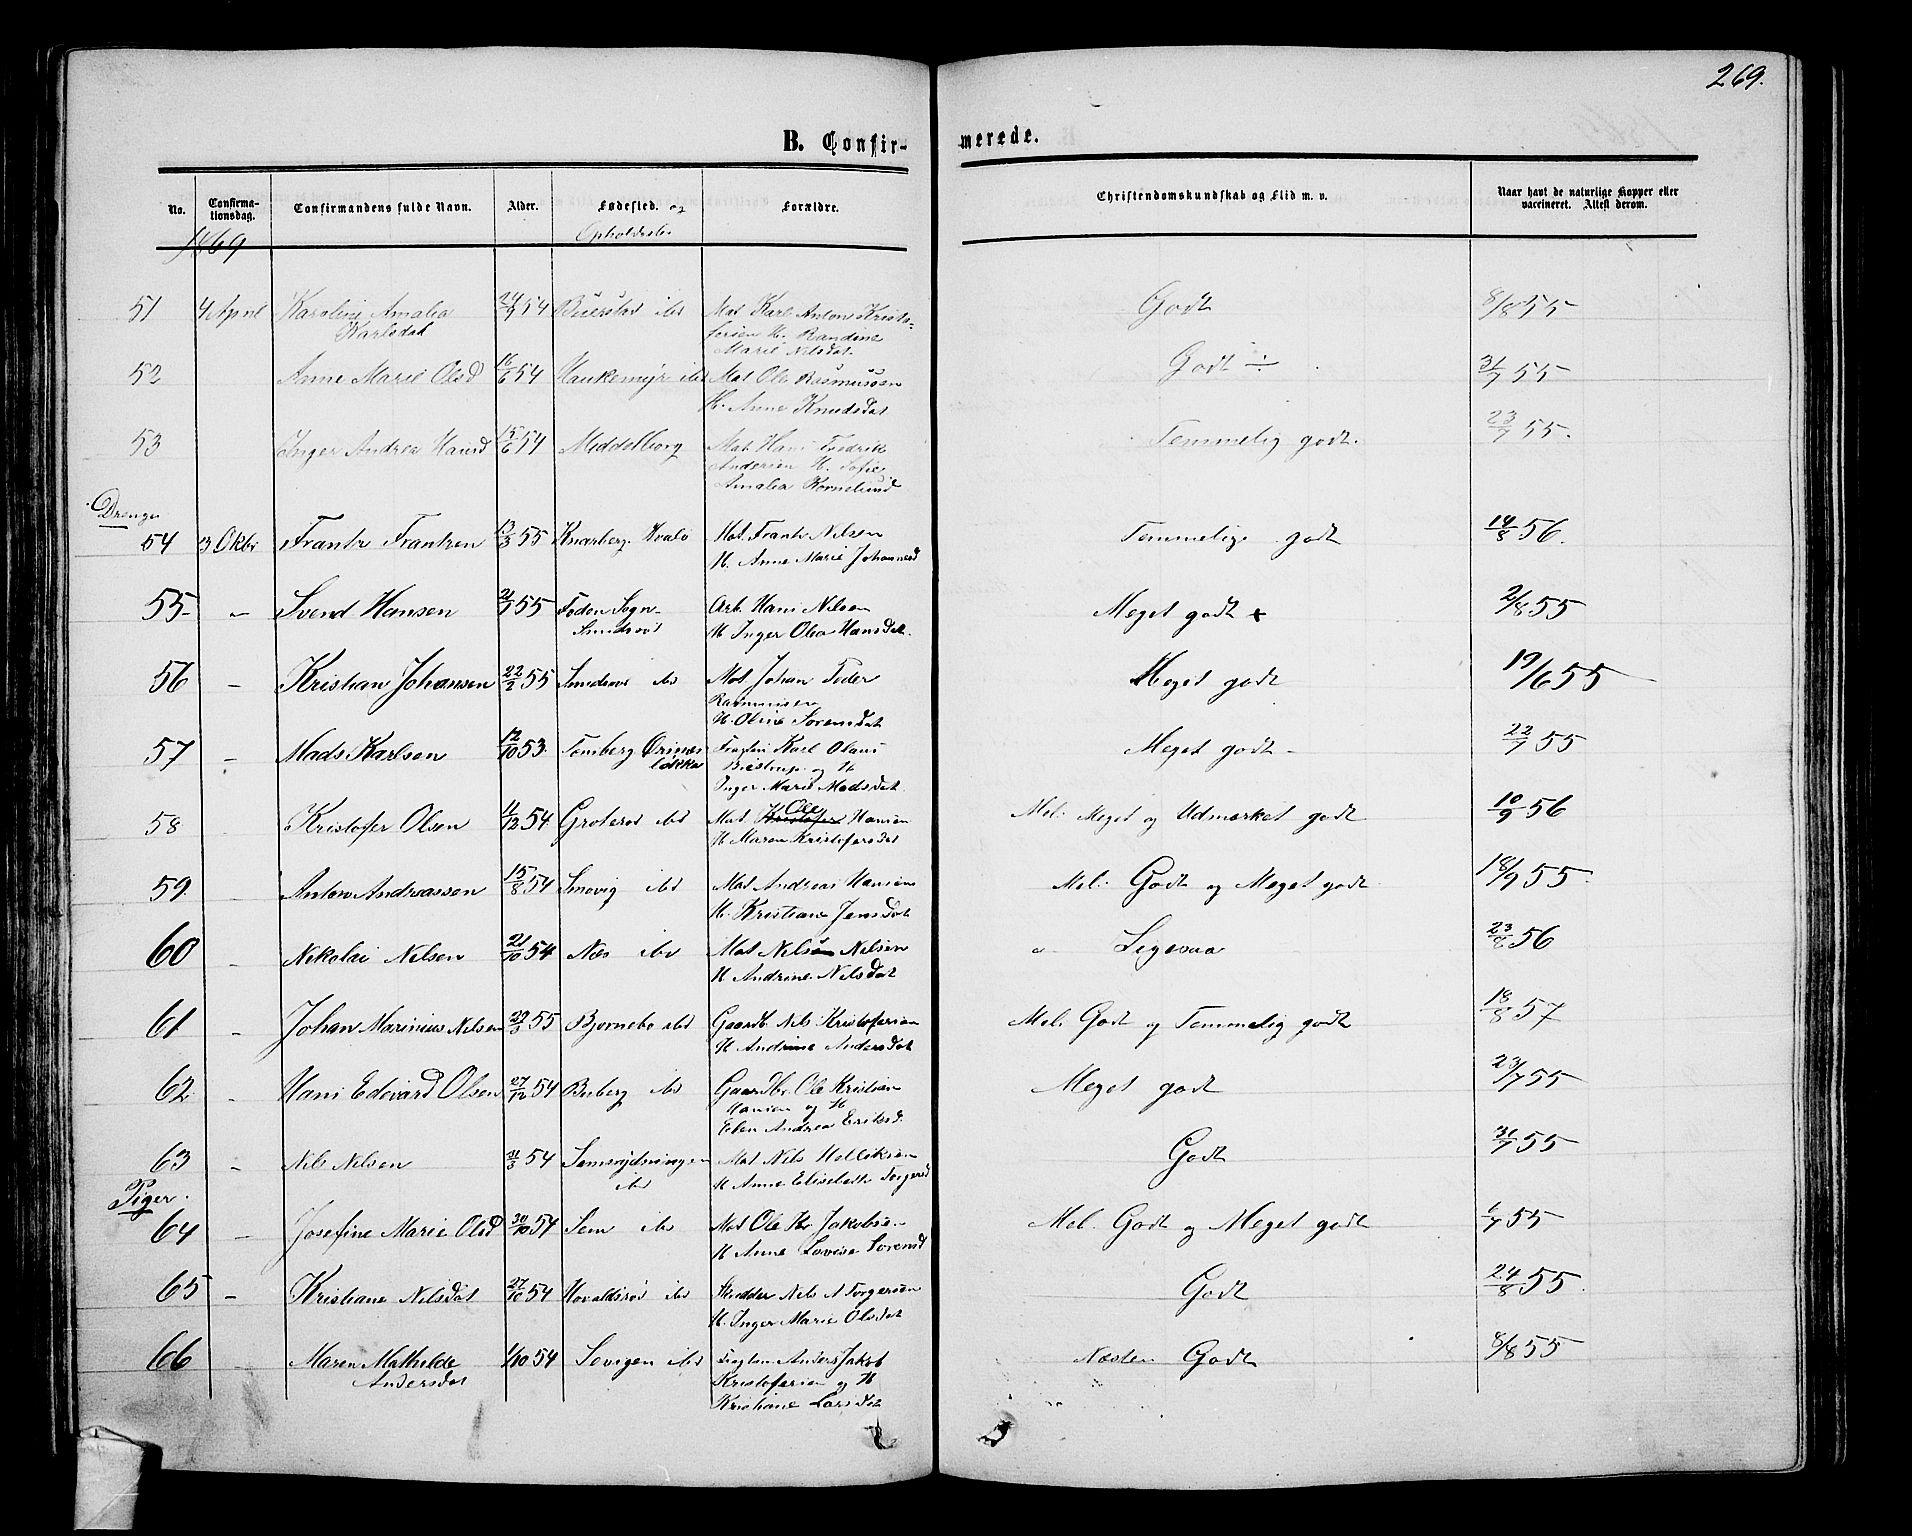 269.
B. Confir- merede.
No. Confirma-tionsdag. Confirmandens fulde Navn. Alder. Fødested. og Opholdssted Forældre. Christendomskundskab og Flid m. v. Naar havt de naturlige Kopper eller vaccineret. Attest derom.
1869
51 4 April Karoline Amalia 54 ibd Mat Karl Anton Kristo- Godt 8/8 55
Karlsdat fersen H. Randine
Marie Nilsdat.
52 Anne Marie Olsd 16/6 54 Haukemyr ibd Mat Ole Rasmussen Godt ÷ 31/7 55
H. Anne Knudsdat
53 Inger Andrea Hansd 15/6 54 Middelborg Mat Hans Fredrik Temmelig godt. 23/7 55.
Andersen H. Sofie
Amalia Kornelius
Drenge
54 3 Oktbr Frantz Frantzen 13/3 55 Knarberg Hvalø Mat. Frantz Nilsen Temmelig godt 14/8 56.
H. Anne Marie Johannesd
55 - Svend Hansen 21/7 55 Føden Sogn Arb. Hans Nilsen Meget godt + 2/8 55
Smidsrød H Inger Olea Hansdat.
56 - Kristian Johansen 22/2 55 Smidsrød ibd Mat Johan Peder Meget godt 19/6 55
Rasmussen
H. Oline Sorensdat
57 - Mads Karlsen 12/10 53. Tønsberg Ørsnes Karl Olaus Meget godt - 22/7 55
løkke Bistrup og H
Inger Marie Madsdat
58 Kristofer Olsen 11/12 54 Grøterød ibd Mat. Kristofer Ole Hansen Mel. Meget og Udmærket godt 10/9 56
H Maren Kristofersdat
59. Anton Andreassen 15/8 54 Smøvig ibd Mat Andreas Hansen Mel. Godt og Meget godt 18/9 55.
H. Kristiane Jensdat
60 - Nikolai Nilsen 21/10 54 Næs ibd Mat Nils Nilsen " Ligesaa 23/8 56
H Andrine Nilsdat
61 - Johan Marinius Nilsen 29/3 55 Bjørnebo ibd Gaardb. Nils Kristofersen Mel. Godt og Temmelig godt 18/8 57
H Andrine Andersdat
62 - Hans Edevard Olsen 27/12 54 Buberg ibd Gaardbr Ole Kristian Meget godt 23/7 55
Hansen og H
Elen Andrea Eriksd.
63 - Nils Nilsen 31/3 54 Semsrydningen Mat Nils Godt 31/7 55
ibd H Anne Elisebeth Torgersd
Piger.
64 - Josefine Marie Olsd 30/10 54 Sem ibd Mat Ole Jakobsen Mel. Godt og Meget godt 1/7 55
H Anne Lovise Sorensd
65 - Kristiane Nilsdat 27/10 54 Hovaldsrød ibd Skredder Nils A Torgersen Godt 24/8 55.
H. Inger Marie Olsdat
66 - Maren Mathilde 1/10 54 Sevigen ibd Anders Jakob Næsten Godt 8/8 55
Andersdat Kristofersen og H
Kristiane Larsdat